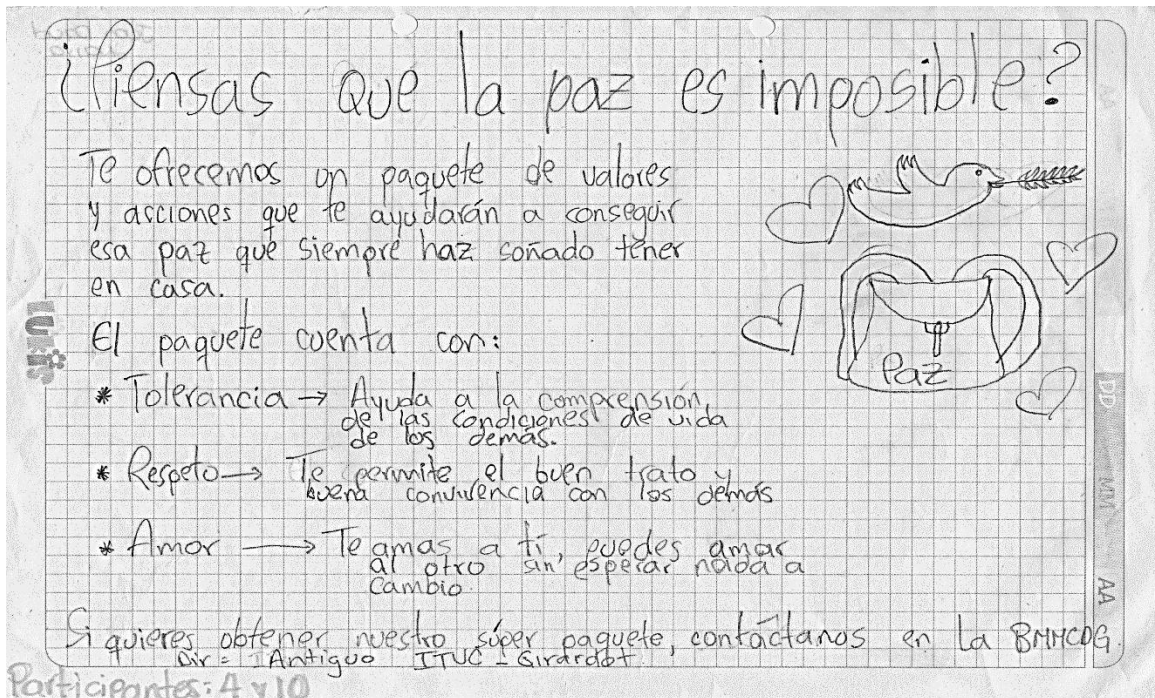 ¿Piensas que la paz es imposible?
Te ofrecemos un paquete de valores
y acciones que te ayudarán a conseguir
esa paz que siempre haz soñado tener
en casa.
El paquete cuenta con:
* Tolerancia → Ayuda a la comprensión
de las condiciones de vida
de los demás.
* Respeto → Te permite el buen trato y
buena convivencia con los demás
* Amor → Te amas a tí, puedes amar
al otro sin esperar nada a
cambio.
Paz
Si quieres obtener nuestro súper paquete, contáctanos en La BMMCDG.
Dir = Antiguo ITUC - Girardot
Participantes: 4 y 10
DD
MM
AA